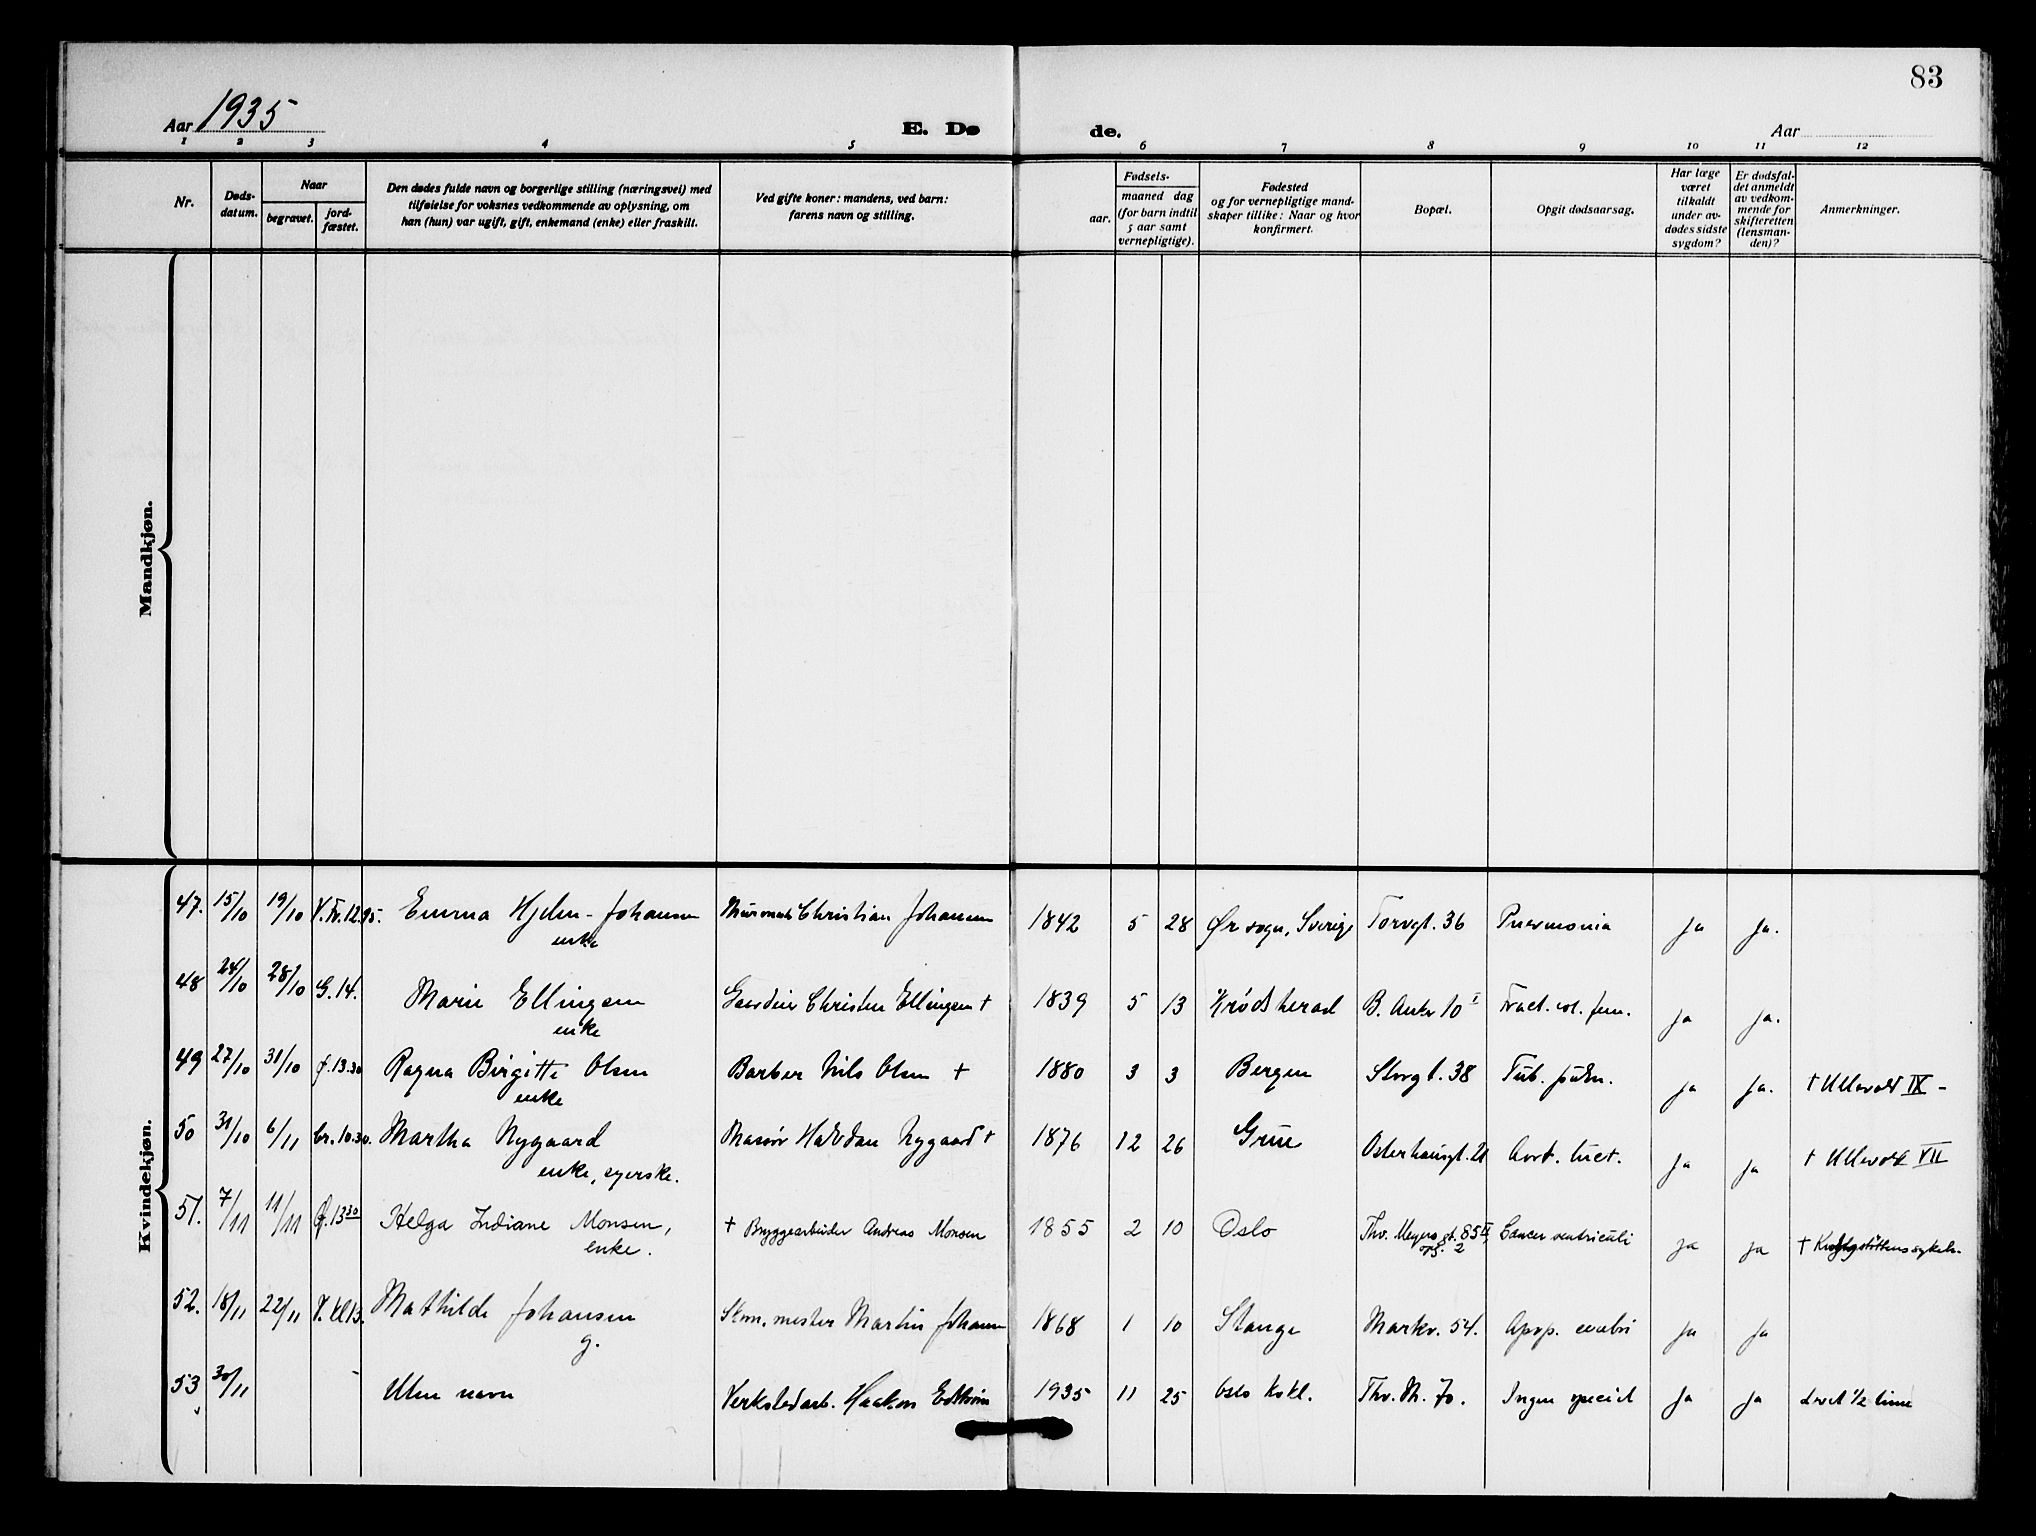 83
Aar 1935
E. Dø de.
Aar
1 2 3 4 5 6 7 8 9 10 11 12
Nr.
Døds-
datum.
Naar
begravet.
jord-
fæstet.
Den dødes fulde navn og borgerlige stilling (næringsvei) med
tilføielse for voksnes vedkommende av oplysning, om
han (hun) var ugift, gift, enkemand (enke) eller fraskilt.
Ved gifte koner: mandens, ved barn:
farens navn og stilling.
Fødsels-
aar.
maaned dag
(for barn indtil
5 aar samt
vernepligtige).
Fødested
og for vernepligtige mand-
skaper tillike: Naar og hvor
konfirmert.
Bopæl.
Opgit dødsaarsag.
Har læge
været
tilkaldt
under av-
dødes sidste
sygdom?
Er dødsfal-
det anmeldt
av vedkom-
mende for
skifteretten
(lensman-
den)?
Anmerkninger.
Mandkjøn.
Kvindekjøn.
47. 15/10 19/10 Emma Hjelm-Johansen Christian Johansen 1842 5 28 Ør sogn, Sverige Torvgt. 36 Pneumonia ja ja.
enke
48 24/10 28/10 G. 14. Marie Ellingsen Christen Ellingsen + 1839 5 13 Krødsherad B. Anker 10 I Fract. col. fem. ja ja.
enke
49 27/10 31/10 Ø. 13.30 Ragna Birgitte Olsen Barber Nils Olsen + 1880 3 3 Bergen Storgt. 38 Tub. pulm. ja ja. + Ullevold IX -
enke
50 31/10 6/11 br. 10.30. Martha Nygaard Massør Halvdan Nygaard + 1876 12 26 Grue Osterhausgt. 21 Aort. luet. ja ja + Ullevold VII
enke, syerske.
51. 7/11 11/11 Ø. 13 30 Helga Indiane Monsen, + Bryggearbeider Andreas Monsen 1855 2 10 Oslo Thv. Meyers gt. 85 II, Cancer ventriculi ja ja
enke.
opg. 2
52. 18/11 22/11 V. kl 13. Mathilde Johansen Skom. mester Martin Johansen 1868 1 10 Stange Markv. 54. Apop. cerebri ja ja
g.
53 30/11 - Uten navn Verkstedarb. Haakon Edstrøm 1935 11 25 Oslo Kvkl. Thv. M. 70. Ingen speciel ja ja Levet 1/2 time